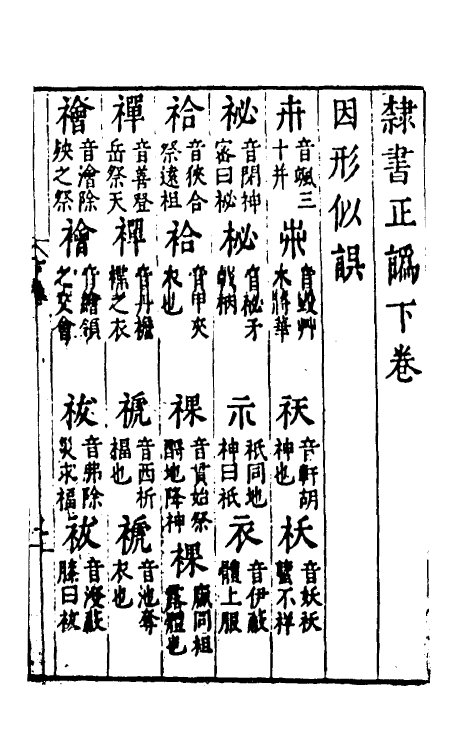 隸書正譌下卷
因形似誤
卉 音諷三十并 𣎵 音毀艸木將華 祆 音軒胡神也 袄 音妖祅孼不祥
祕 音閉神密曰祕 柲 音秘矛戟柄 示 祇同地神曰祇 衣 音伊蔽體上服
祫 音狹合祭遠祖 袷 音甲夾衣也 祼 音貫始祭酹地降神 裸 臝同袒露體也
禪 音善登岳祭天 襌 音丹襜褋之衣 禠 音西祈福也 褫 音池奪衣也
禬 音澮除殃之祭 襘 音繪領之交會 祓 音弗除災求福 袚 音潑蔽膝曰袚